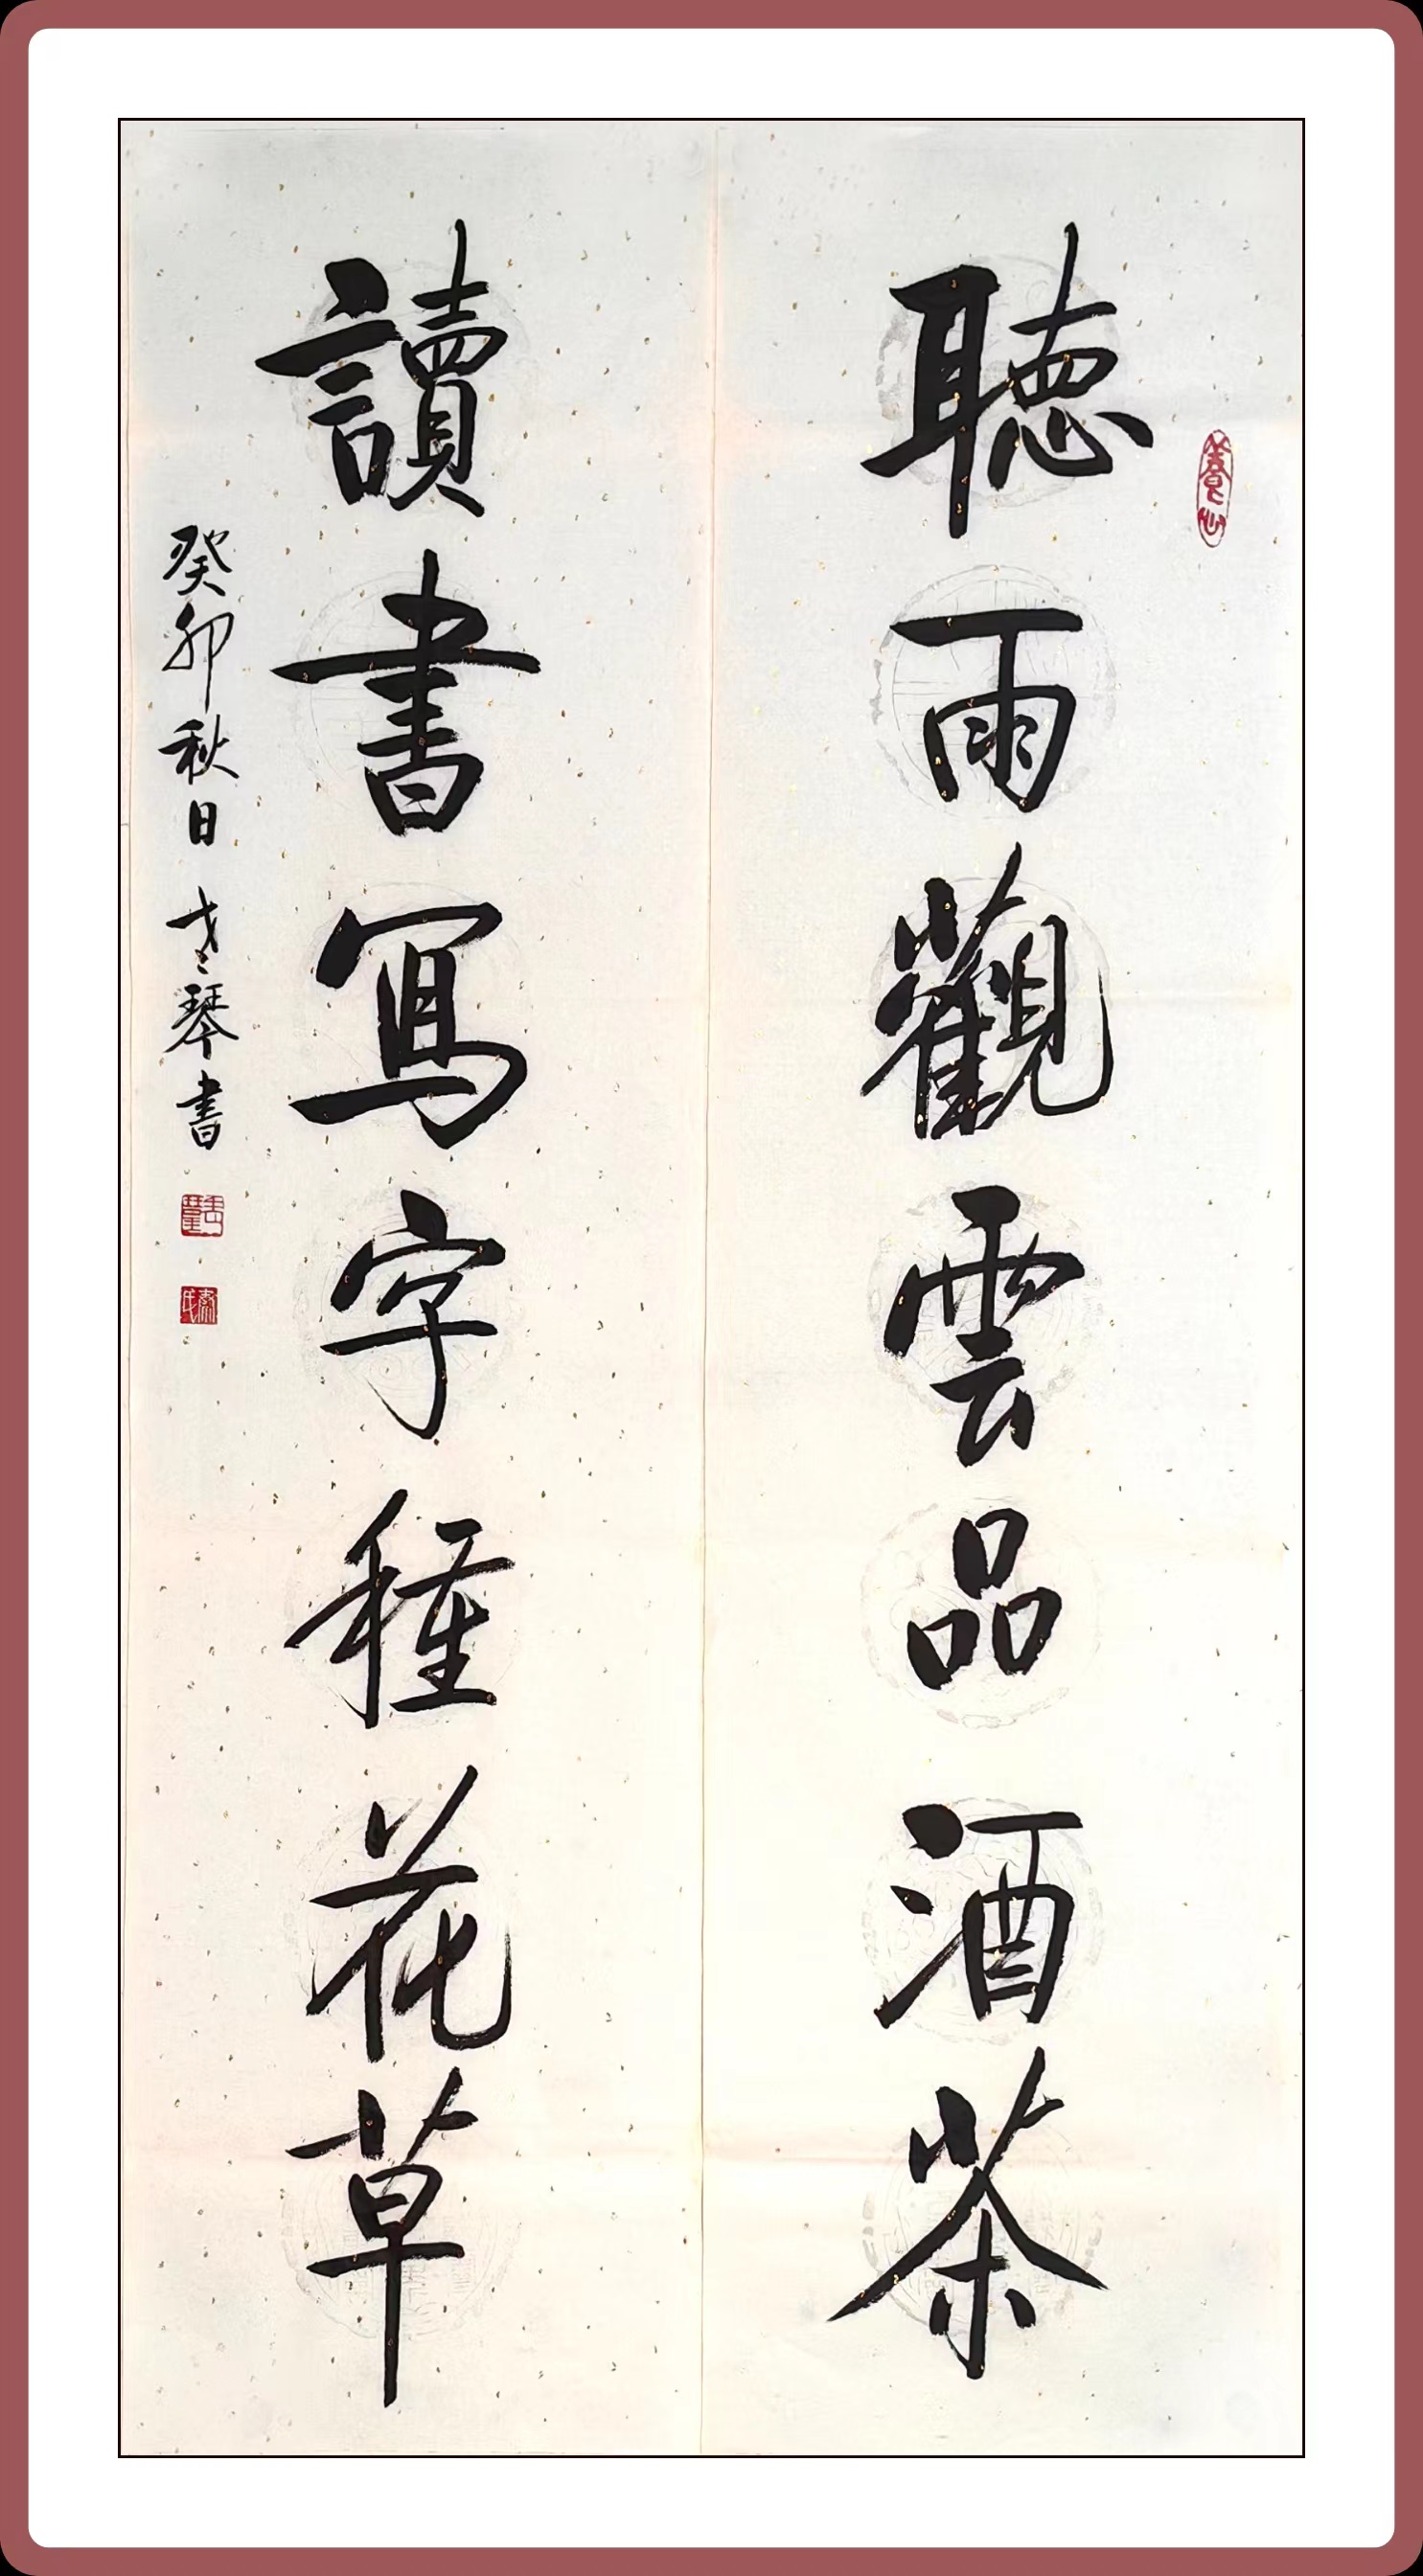 聽雨觀雲品酒茶
讀書寫字種花草
癸卯秋日 琴書
養心